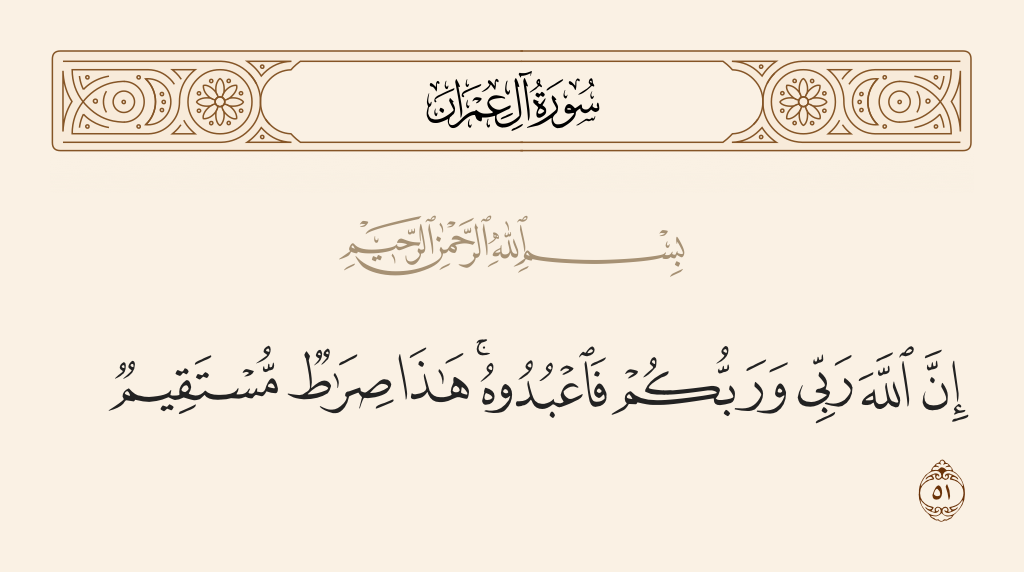 سُورَةُ آلِ عِمْرَانَ
بِسْمِ ٱللَّهِ ٱلرَّحْمَٰنِ ٱلرَّحِيمِ
إِنَّ ٱللَّهَ رَبِّى وَرَبُّكُمْ فَٱعْبُدُوهُ ۚ هَٰذَا صِرَٰطٌ مُّسْتَقِيمٌ
٥١